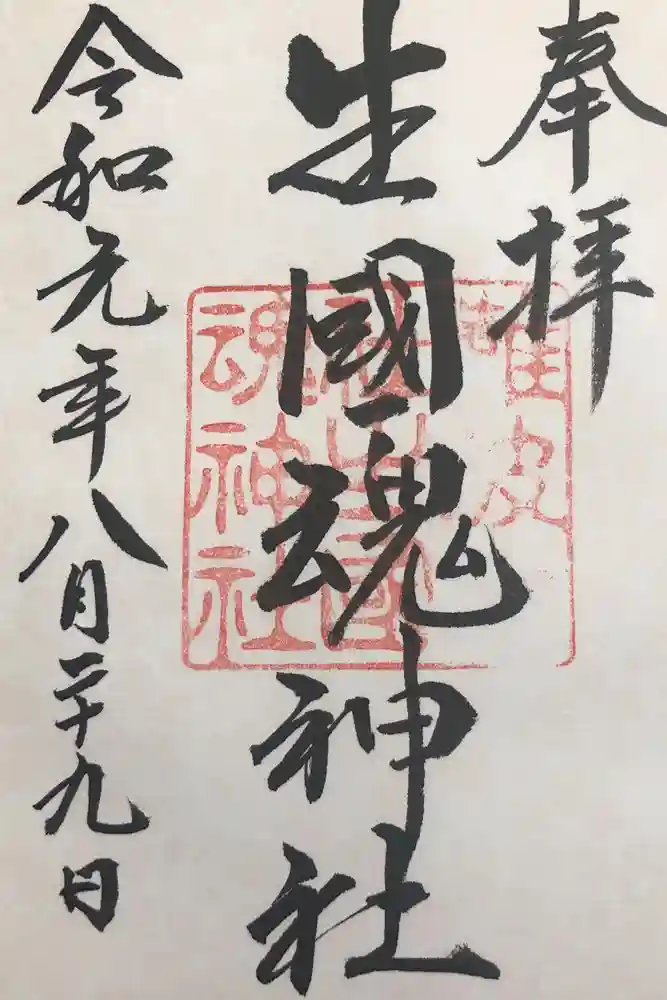 奉拝
生國魂神社
令和元年八月二十九日
生國
魂神社